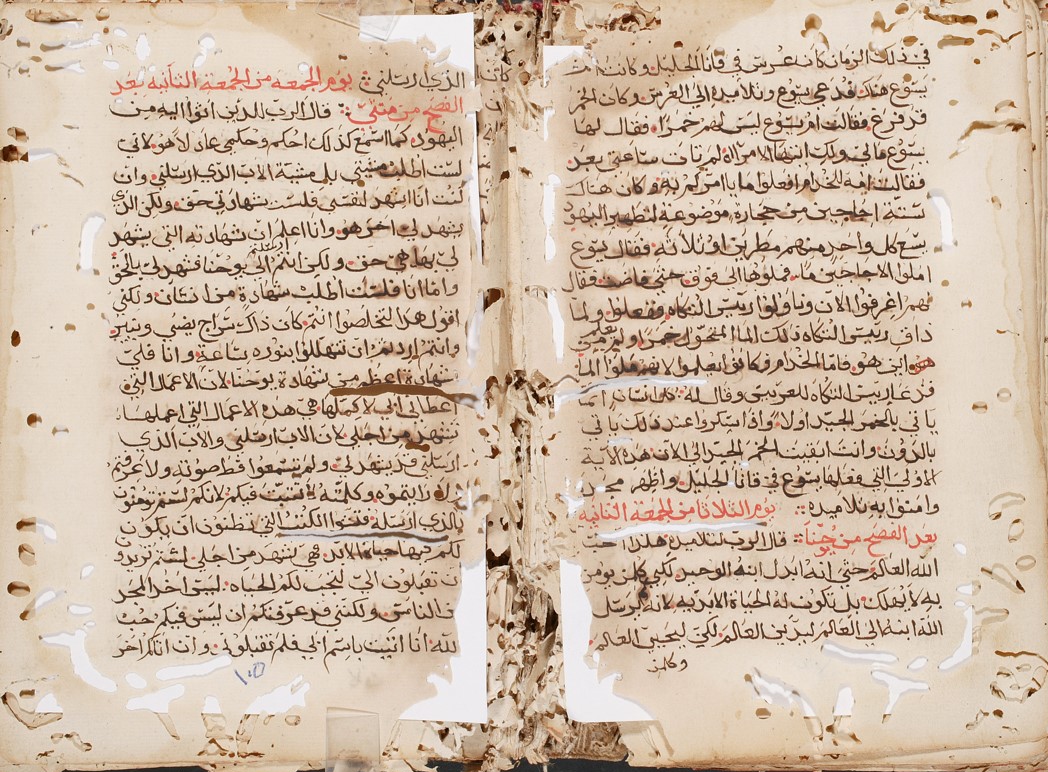 في ذلك الزمان كان عرس في قانا الجليل وكانت ام
يسوع هناك فدعي يسوع وتلاميذه الي العرس وكان الخمر
قد فرغ فقالت ام يسوع ليس لهم خمرا فقال لها
يسوع مالي ولك ايتها الامراه لم تات ساعتي بعد
فقالت امه للخدام افعلوا ما يامركم به وكان هناك
ستة اجاجين من حجارة موضوعة لتطهير اليهود
يسع كل واحد منهم مطرين او ثلاثة فقال يسوع
املوا الاجاجين ما فملوها الي فوق حتي فاضت فقال
لهم اغرفوا الان وناولوا رييس التكاه ففعلوا ولما
داق رييس التكاه ذلك الما المتحول خمرا ولم يعلم من
هو اين هو فاما الخدام فكانوا يعلموا لانهم ملوا الما
فدعا رييس التكاه للعريس وقال له كل انسان انما
ياتي بالخمر الجيد اولا واذا سكروا عند ذلك ياتي
بالدون وانت ابقيت الخمر الجيد الي الان هذه الاية
الاولي التي فعلها يسوع في قانا الجليل واظهر مجده
وامنوا به تلاميذه يوم الثلاثا من الجمعة الثانيه
بعد الفصح من يوحنا قال الرب لتلاميذه هكذا احب
الله العالم حتي انه ابدل ابنه الوحيد لكي كلمن يومن
به لا يهلك بل تكون له الحياة الابديه لانه لم يرسل
الله ابنه الي العالم ليدين العالم لكي ليحيي العالم
وكلمن
الذي ارسلني يوم الجمعه من الجمعة الثانيه بعد
الفصح من متي قال الرب للدين اتوا اليه من
اليهود كما اسمع كذلك احكم وحكمي عادلا هو لاني
لست اطلب مشيتي بل مشية الاب الذي ارسلني وان
كنت انا اشهد لنفسي فليست شهادتي حق ولكن الذي
يشهد لي اخر هو وانا اعلم ان شهادته التي يشهد
لي بها هي حق ولكن انتم ارسلتم الي يوحنا فشهد لي بالحق
واما انا فلست اطلب شهادة من انسان ولكني
اقول هذا لتخلصوا انتم كان ذاك سراج يضي وينير
وانتم اردتم ان تتهللوا بنوره ساعه وانا فلي
شهادة اعظم من شهادة يوحنا لان الاعمال التي
اعطاني ابي لاكملها هي هذه الاعمال التي اعملها
تشهد من اجلي لان الاب ارسلني والاب الذي
ارسلني قد يشهد لي ولم تسمعوا قط صوته ولا عرفتم
ولا رايتموه وكلمته ليست فيكم لانكم لستم تومنون
بالذي ارسله فتشوا الكتب التي تظنون ان يكون
لكم فيها حياة الابد فهي تشهد من اجلي لستم تريدو
ن تقبلون الي ليجب لكم الحياه ليس اخد المجد
من الناس ولكني قد عرفتكم ان ليس فيكم حب
الله انا اتيت باسم ابي فلم تقبلوني وان اتاكم اخر